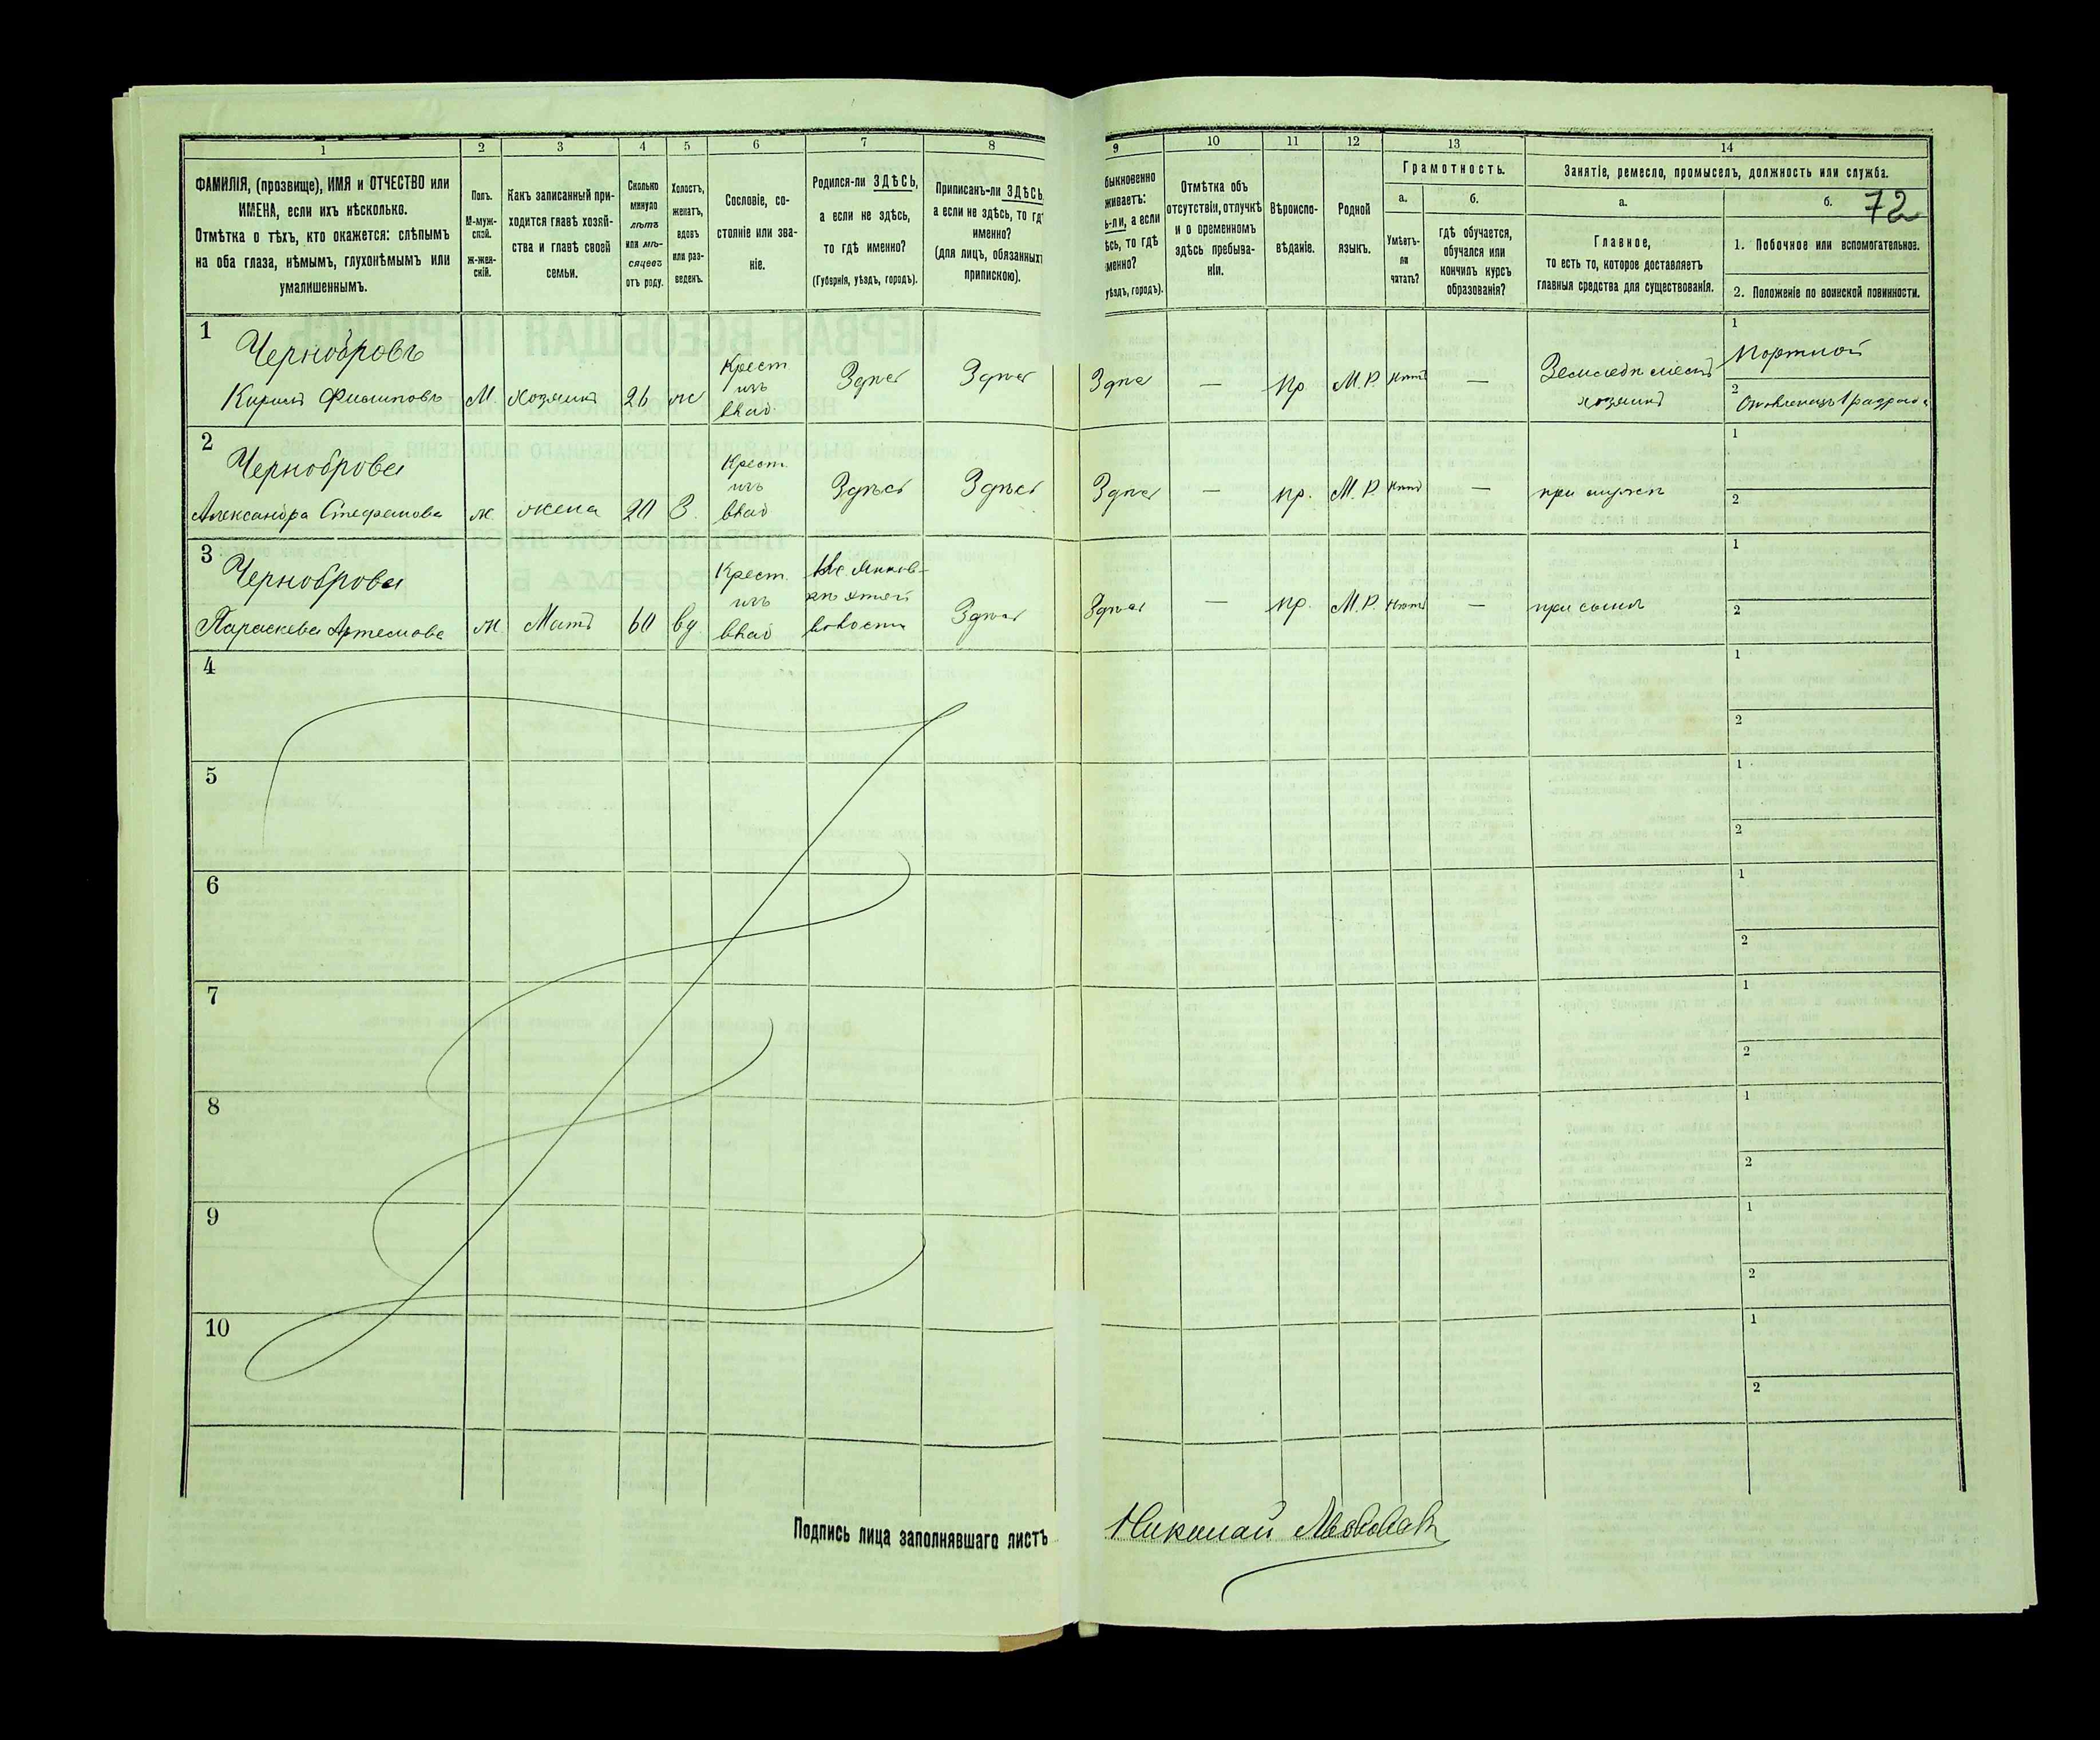 1 2 3 4 5 6 7 8 9 10 11 12 13 14
ФАМИЛІЯ, (прозвище), ИМЯ и ОТЧЕСТВО или
ИМЕНА, если ихъ нѣсколько.
Отмѣтка о тѣхъ, кто окажется: слѣпымъ
на оба глаза, нѣмымъ, глухонѣмымъ или
умалишеннымъ.
Полъ.
М-муж-
ской.
ж-жен-
скій.
Какъ записанный при-
ходится главѣ хозяй-
ства и главѣ своей
семьи.
Сколько
минуло
лѣтъ
или мѣ-
сяцевъ
отъ роду.
Холостъ,
женатъ,
вдовъ
или раз-
веденъ.
Сословіе, со-
стояніе или зва-
ніе.
Родился-ли ЗДѢСЬ,
а если не здѣсь,
то гдѣ именно?
(Губернія, уѣздъ, городъ).
Приписанъ-ли ЗДѢСЬ,
а если не здѣсь, то гдѣ
именно?
(для лицъ, обязанныхъ
припискою).
быкновенно
живаетъ:
ь-ли, а если
ѣсь, то гдѣ
менно?
уѣздъ, городъ).
Отмѣтка объ
отсутствіи, отлучкѣ
и о временномъ
здѣсь пребыва-
ніи.
Вѣроиспо-
вѣданіе.
Родной
языкъ.
Грамотность.
а.
Умѣетъ-
ли
читать?
б.
гдѣ обучается,
обучался или
кончилъ курсъ
образованія?
Занятіе, ремесло, промыселъ, должность или служба.
а.
Главное,
то есть то, которое доставляетъ
главныя средства для существованія.
б.
72
1. Побочное или вспомогательное.
2. Положеніе по воинской повинности.
1
Чернобровъ
Кирилъ Филиповъ
М.
хозяинъ
26
ж
Крест
изъ
влад
Здѣсь
Здѣсь
Здѣсь
—
пр.
М. Р.
нѣтъ
—
хозяинъ
1
Портной
2
2
Черноброва
Александра Стефанова
ж.
жена
20
З.
Крест.
изъ
влад
Здѣсь
Здѣсь
Здѣсь
—
пр.
М. Р.
нѣтъ
—
при мужѣ
1
2
3
Черноброва
Параскева Артемова
ж
Мать
60
вд.
Крест.
изъ
влад
волости
Здѣсь
Здѣсь
—
пр.
М. Р.
нѣтъ
—
при сынѣ
1
2
4
1
2
5
1
2
6
1
2
7
1
2
8
1
2
9
1
2
10
1
2
Подпись лица заполнявшаго листъ
Николай